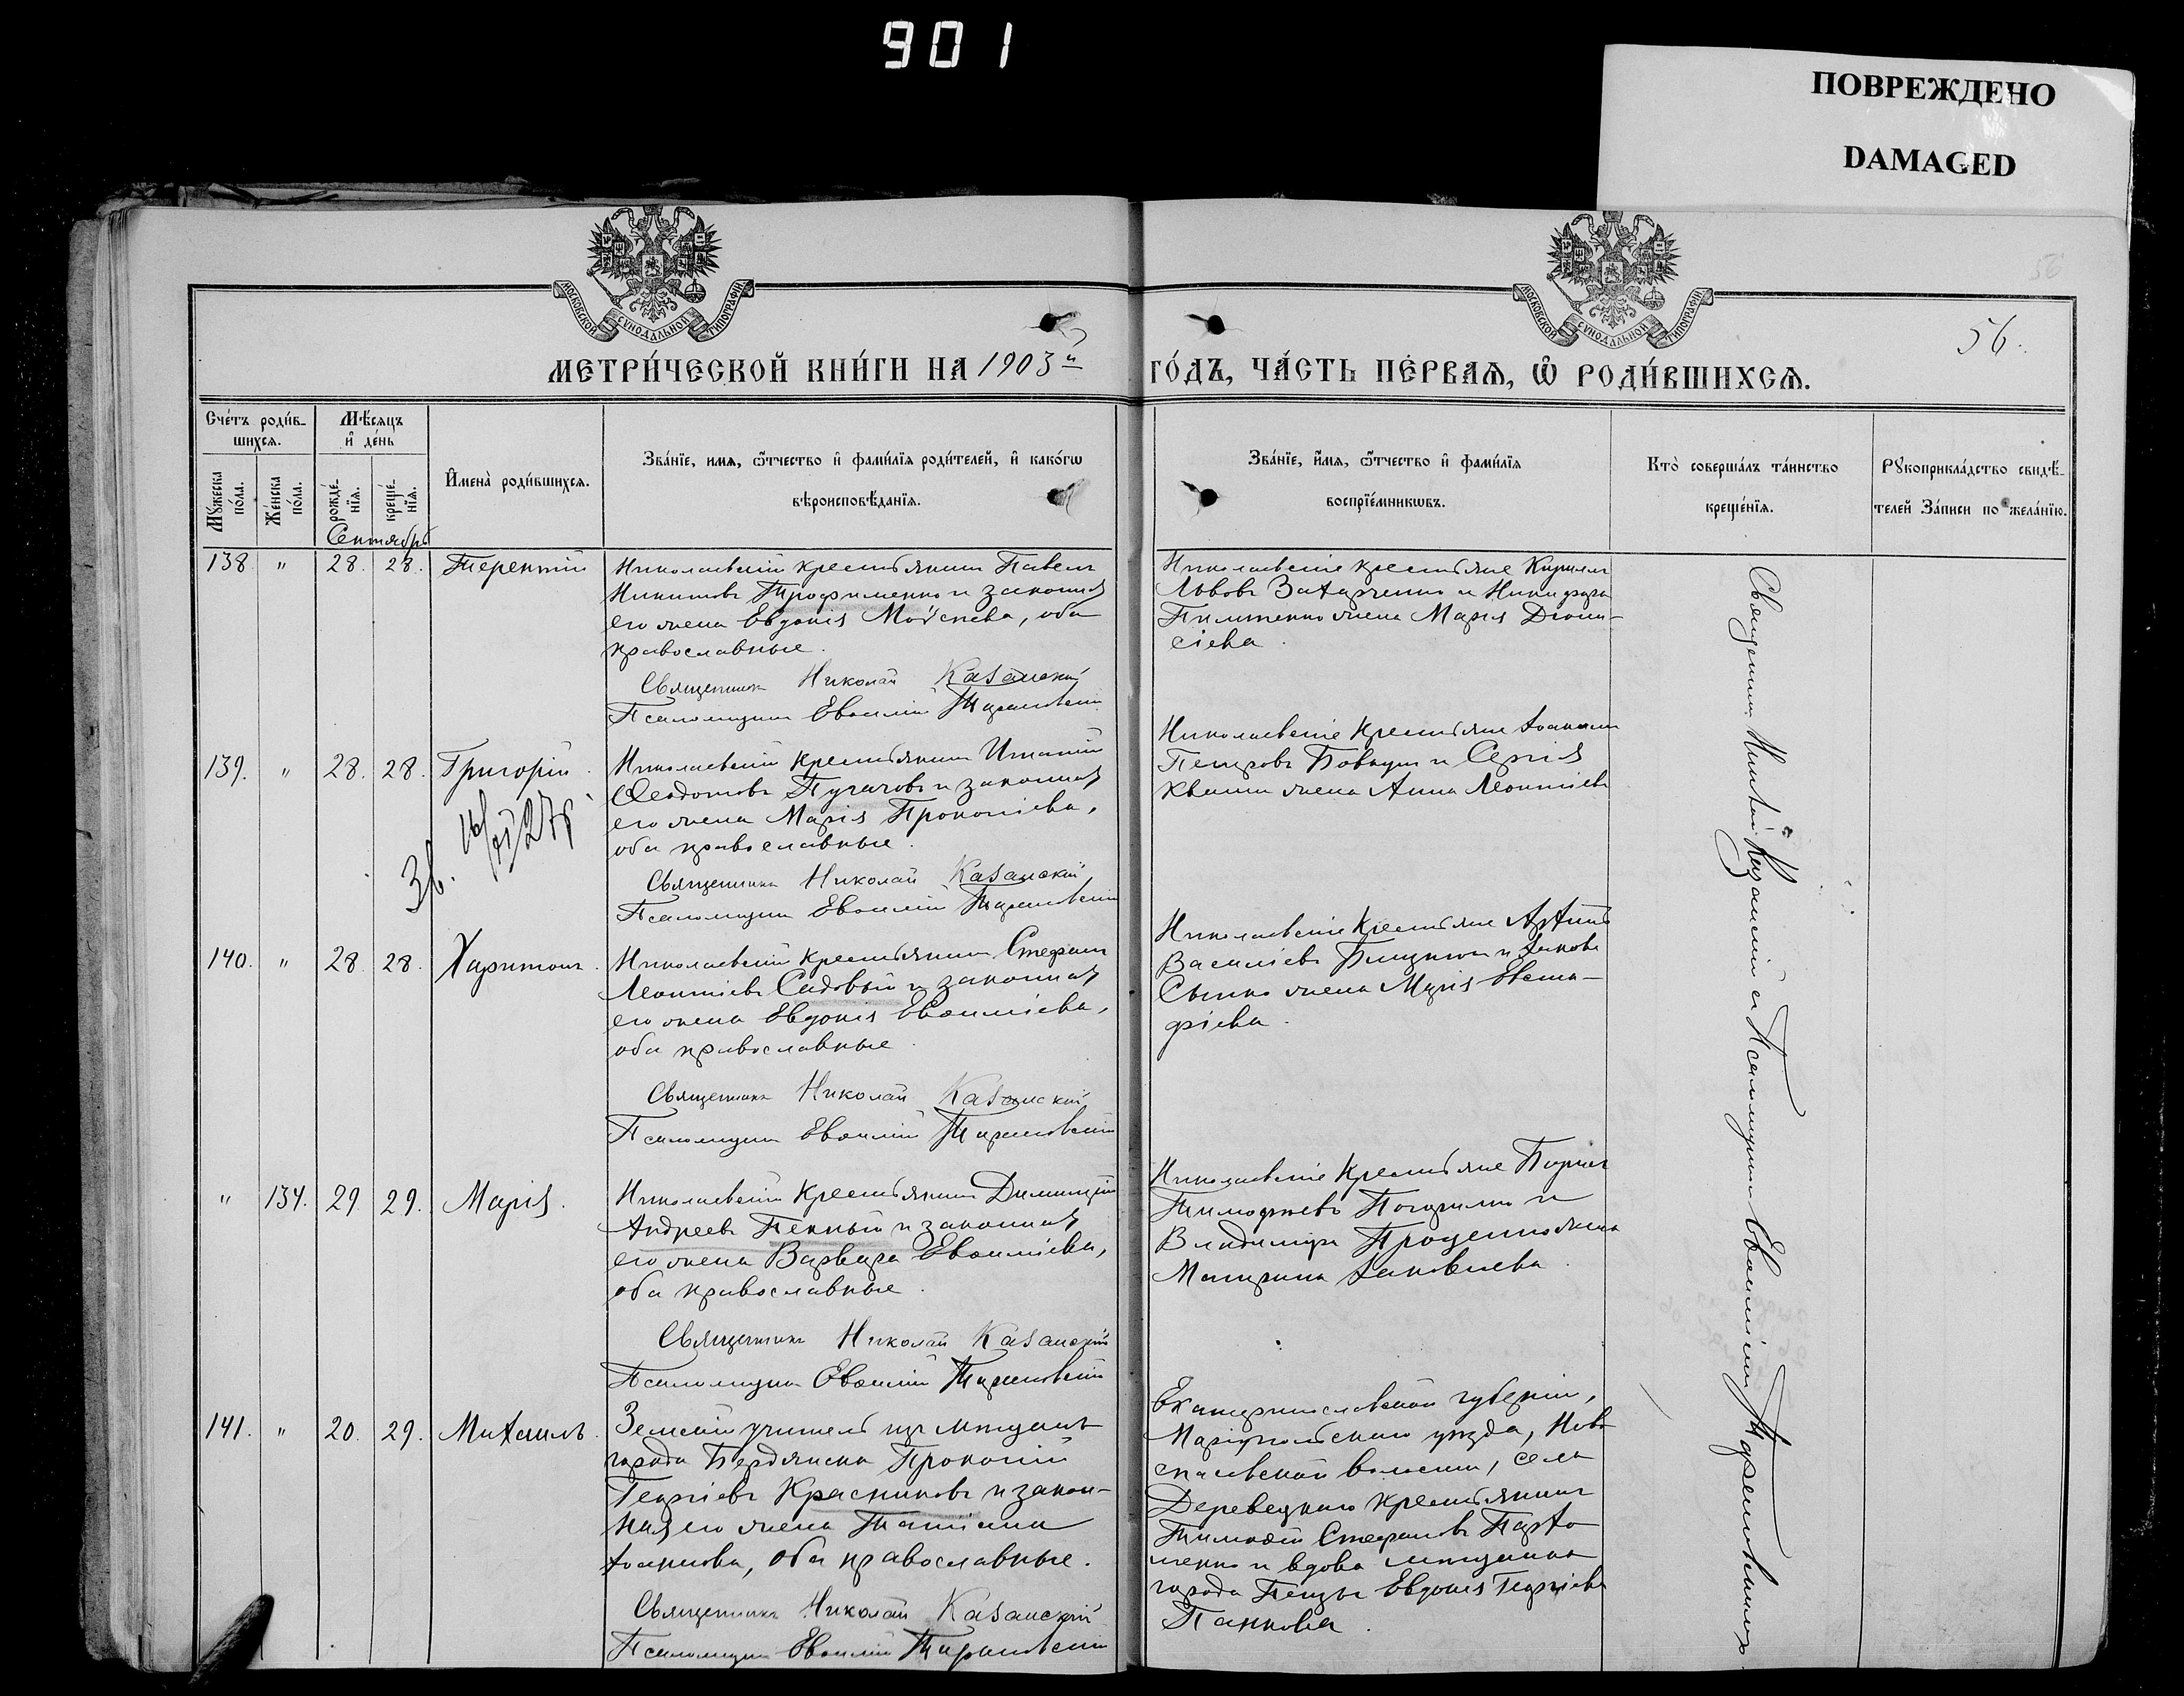 901
ПОВРЕЖДЕНО
DAMAGED
МОСКОВСКОЙ СѴНОДАЛЬНОЙ ТИПОГРАФІИ
МОСКОВСКОЙ СѴНОДАЛЬНОЙ ТИПОГРАФІИ
56
56.
МЕТРИ́ЧЕСКОЙ КНИ́ГИ НА 1903й
ГО́ДЪ, ЧА́СТЬ ПЕ́РВАѦ, Ѽ РОДИ́ВШИХСѦ.
Сче́тъ роди́в-
шихсѧ.
Мꙋжеска по́ла.
Же́нска по́ла.
Мѣ́сѧцъ
и҆ де́нь
рожде́-
нїѧ.
креще́-
нїѧ.
И҆мена̀ роди́вшихсѧ.
Зва́нїе, имѧ, ѿтчество и҆ фами́лїѧ роди́телей, и҆ како́гѡ
вѣроисповѣ́данїѧ.
Зва́нїе, и҆́мѧ, ѿтчество и҆ фами́лїѧ
воспрїе́мникѡвъ.
Кто̀ соверша́лъ та́инство
креще́нїѧ.
Рꙋкоприкла́дство свидѣ́-
телей За́писи по жела́нїю.
Сентябрь
138 " 28. 28. Терентій
Николаевскій крестьянинъ Павелъ
Никитовъ Трофименко и законная
его жена Евдокія Моѵсеева, оба
православные.
Священникъ Николай Казанскій
Псаломщикъ Евѳимій Тарановскій
Николаевскіе крестьяне Кириллъ
Львовъ Захарченко и Никифора
Пилипенко жена Марія Діони-
сіева.
139. " 28. 28. Григорій.
Зв. 16/VI 27 г.
Николаевскій крестьянинъ Игнатій
Ѳеодотовъ Пугачовъ и законная
его жена Марія Прокопіева,
оба православные.
Священникъ Николай Казанскій
Псаломщикъ Евѳимій Тарановскій
Николаевскіе крестьяне Іоакимъ
Петровъ Бовкунъ и Сергія
Кваши жена Анна Леонтіева
140. " 28. 28. Харитонъ.
Николаевскій крестьянинъ Стефанъ
Леонтіевъ Садовый и законная
его жена Евдокія Евѳиміева,
оба православные.
Священникъ Николай Казанскій
Псаломщикъ Евѳимій Тарановскій
Николаевскіе крестьяне Архипъ
Василіевъ и Іакова
жена Марія Евста-
фіева.
" 134. 29. 29. Марія.
Николаевскій крестьянинъ Димитрій
Андреевъ Пенный и законная
его жена Варвара Евѳиміева,
оба православные.
Священникъ Николай Казанскій
Псаломщикъ Евѳимій Тарановскій
Николаевскіе крестьяне
Тимофеевъ и
Владимира Проценко жена
Матрона Іаковлева.
141. " 20. 29. Михаилъ.
Земскій учитель изъ мѣщанъ
города Бердянска Прокопій
Георгіевъ Красниковъ и закон-
ная его жена Татіана
Іоаннова, оба православные.
Священникъ Николай Казанскій
Псаломщикъ Евѳимій Тарановскій
Екатеринославской губерніи,
Маріупольскаго уѣзда, Ново
спасовской волости, села
крестьянинъ
Тимоѳей Стефановъ Пархо
менко и вдова мѣщанина
города Пензы Евдокія Георгіева
Панкова.
Священникъ Николай Казанскій съ Псаломщикомъ Евѳиміемъ Тарановскимъ.